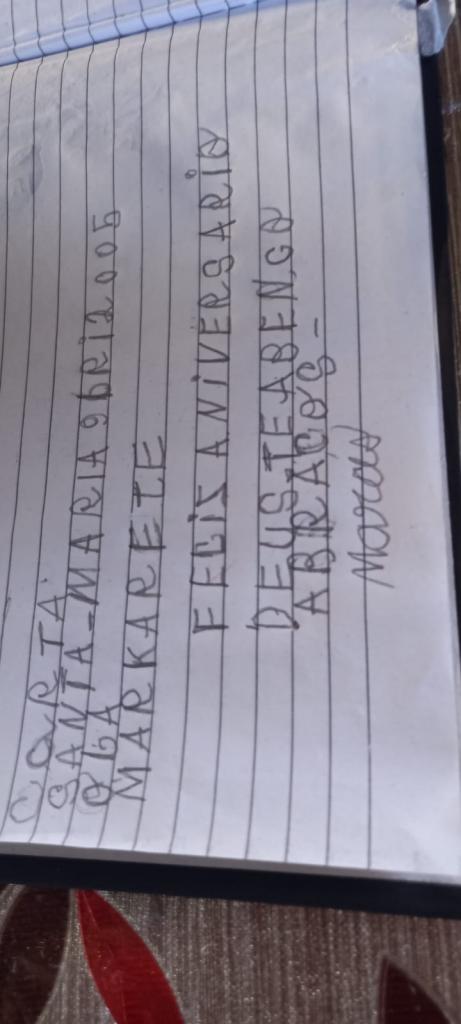 CARTA
SANTA-MARIA 9 bRi 2005
OLA
MARKARETE
FELIS ANIVERSARIO
DEUS TE ABENCO
ABRACOS-